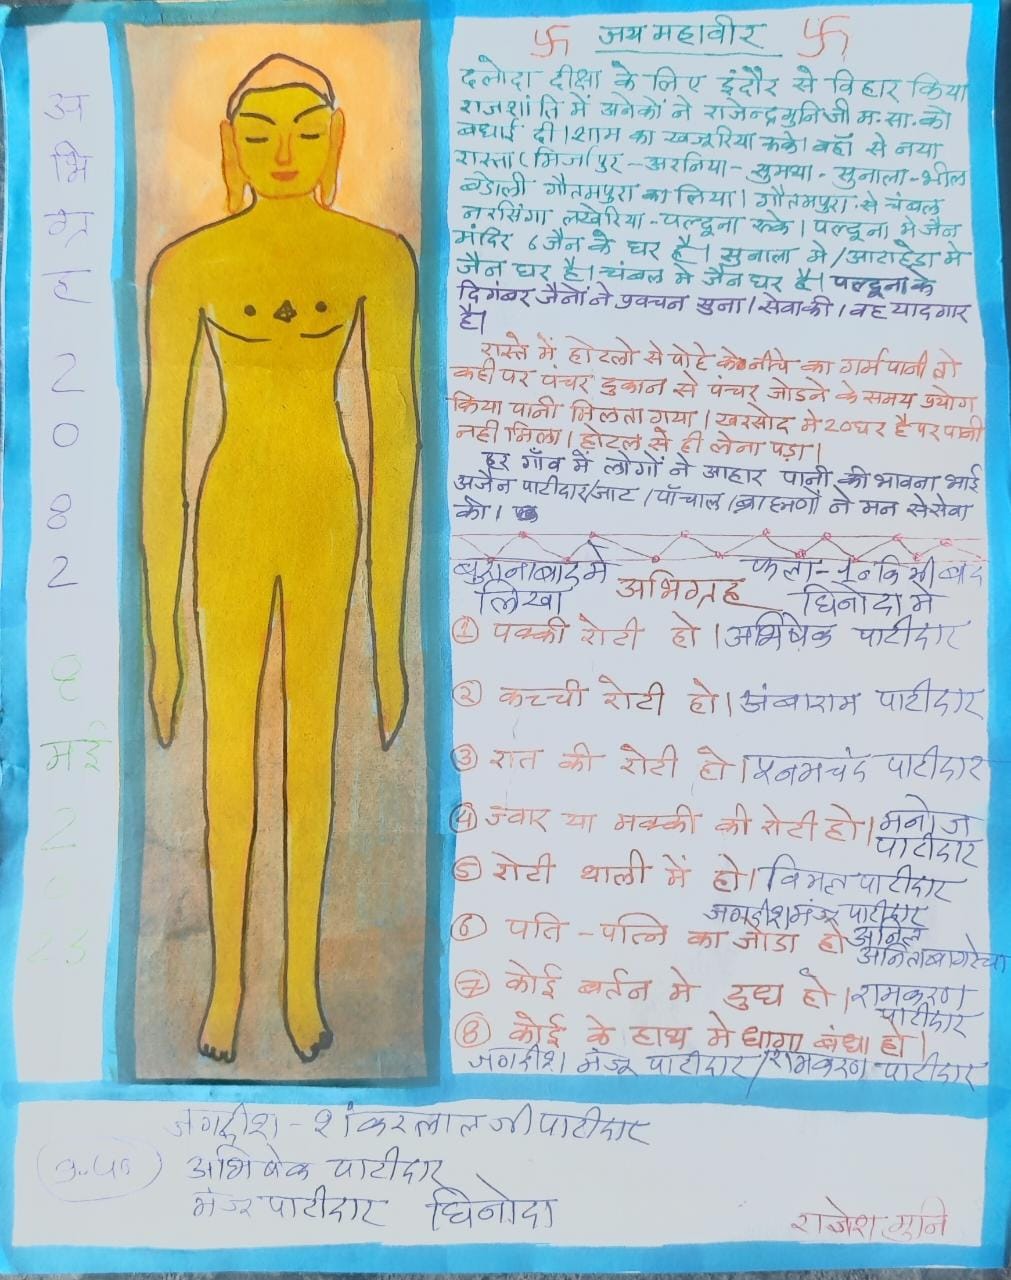 जय महावीर
दलोदा दीक्षा के लिए इंदौर से विहार किया
राजशांति में अनेकों ने राजेन्द्रमुनिजी म.सा. को
बधाई दी। शाम का खजूरिया रुके। वहाँ से नया
रास्ता (मिर्जापुर - अरनिया - सुमठा - सुनाला - भील
बडोली गौतमपुरा का लिया। गौतमपुरा से चंबल
नरसिंगा लखेरिया - पल्दूना रुके। पल्दूना मे जैन
मंदिर 6 जैन के घर है। सुनाला मे / आटाहेडा मे
जैन घर है। चंबल मे जैन घर है। पल्दूना के
दिगंबर जैनों ने प्रवचन सुना। सेवाकी। वह यादगार
है।
रास्ते में होटलो से पोटे के नीचे का गर्म पानी तो
कही पर पंचर दुकान से पंचर जोडने के समय प्रयोग
किया पानी मिलता गया। खरसोद मे 20 घर है पर पानी
नही मिला। होटल से ही लेना पड़ा।
हर गाँव में लोगों ने आहार पानी की भावना भाई
अजैन पाटीदार/जाट/पाँचाल/ब्राह्मणों ने मन से सेवा
की।
लिखा अभिग्रह घिनोदा मे
① पक्की रोटी हो। अभिषेक पाटीदार
② कच्ची रोटी हो। अंबाराम पाटीदार
③ रात की रोटी हो। पूनमचंद पाटीदार
④ ज्वार या मक्की की रोटी हो। मनोज
पाटीदार
⑤ रोटी थाली में हो। विमल पाटीदार
जगदीश मंजू पाटीदार
⑥ पति - पत्नि का जोडा हो अनिल
अनिता बागरेचा
⑦ कोई बर्तन मे दुध हो। रामकरण
पाटीदार
⑧ कोई के हाथ मे धागा बंधा हो।
जगदीश। मंजू पाटीदार / रामकरण पाटीदार
अ
भि
ग्र
ह
2
0
8
2
8
मई
2
0
23
जगदीश - शंकरलालजी पाटीदार
अभिषेक पाटीदार
मंजू पाटीदार घिनोदा
राजेश मुनि